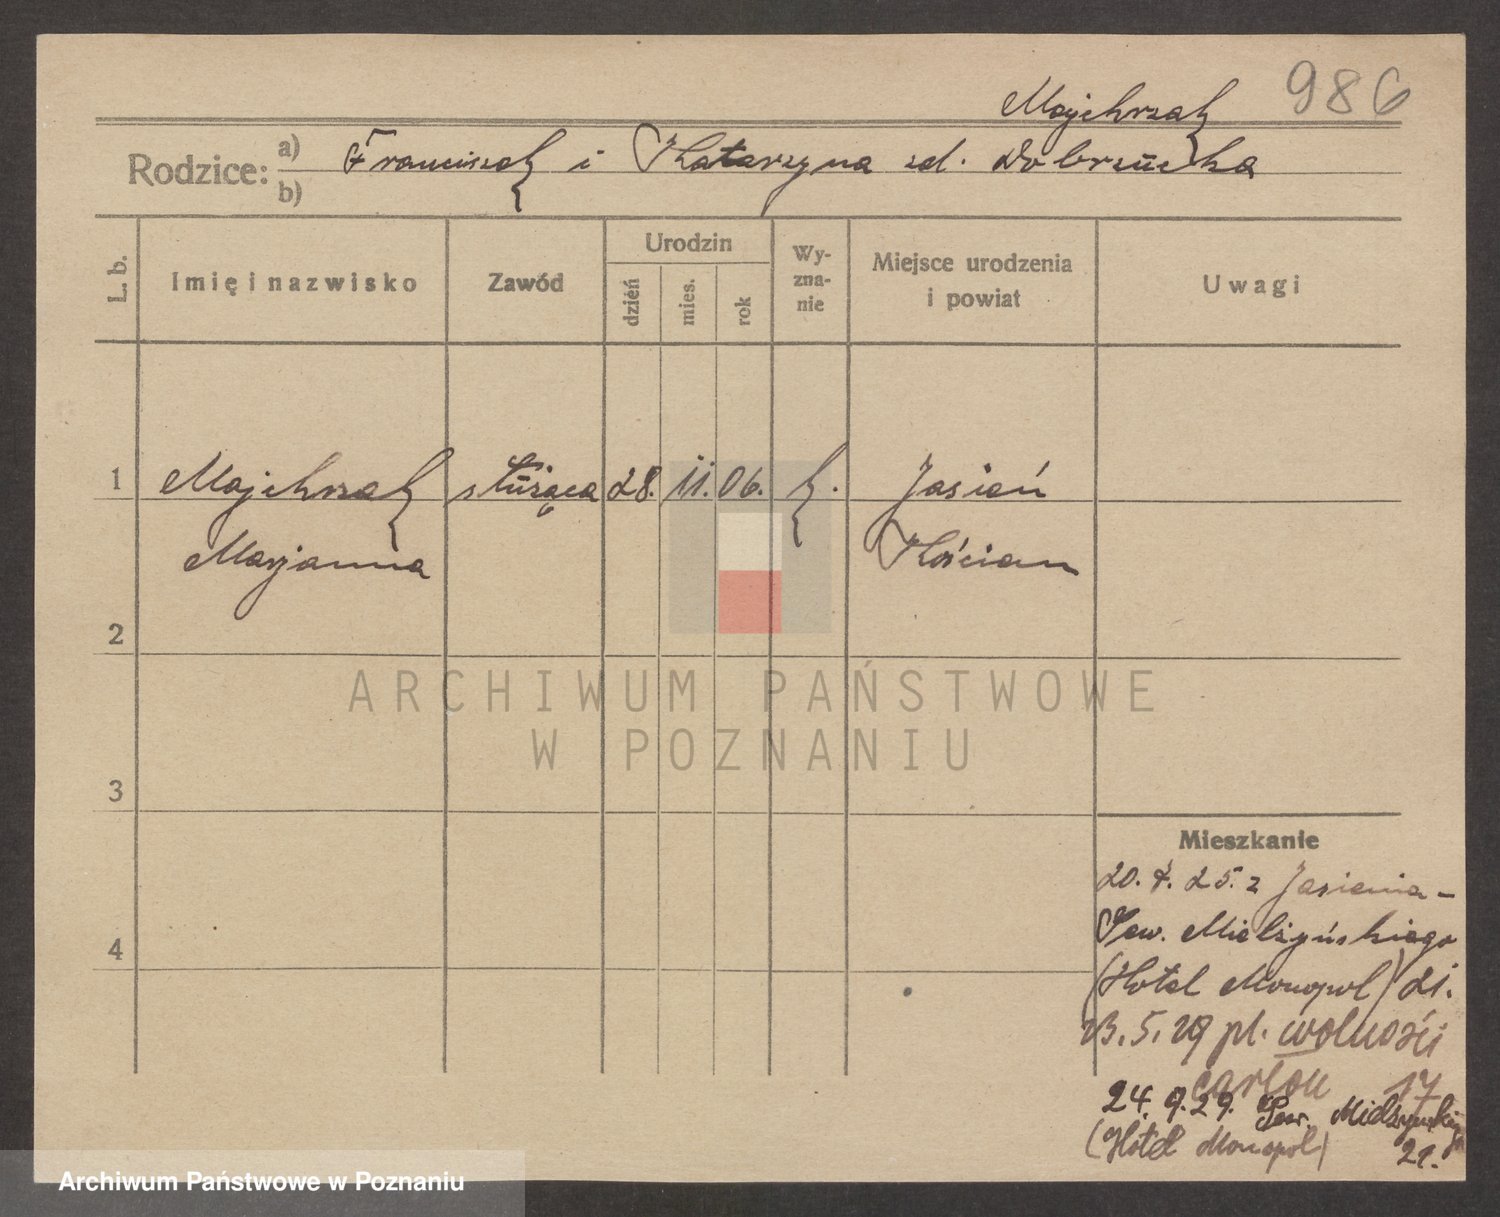 986
Majchrzak
Rodzice: a) b) Franciszek i Katarzyna zd. Dobrzucka
L. b. Imię i nazwisko Zawód Urodzin dzień mies. rok Wyznanie Miejsce urodzenia i powiat Uwagi
1 Majchrzak służąca 28. 11. 06. k. Jasień
Marjanna Kościan
2
ARCHIWUM PAŃSTWOWE
W POZNANIU
3
Mieszkanie
20. 7. 25. z Jasienia -
Sew. Mielżyńskiego
4
(Hotel Monopol) 21.
23. 5. 29 pl. wolności
17
24. 9. 29. Sew. Mielżyńskiego
(Hotel Monopol) 21.
Archiwum Państwowe w Poznaniu